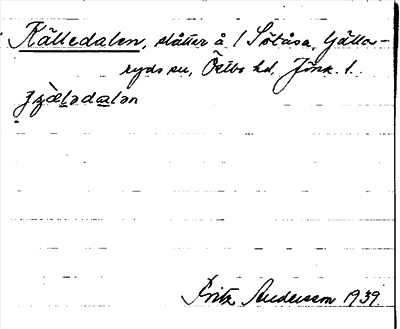 Källedalen, slåtter å 1 Sötåsa, Gälla-
ryds sn, Östbo hd, Jönk. l.
Fritz Andersson 1939